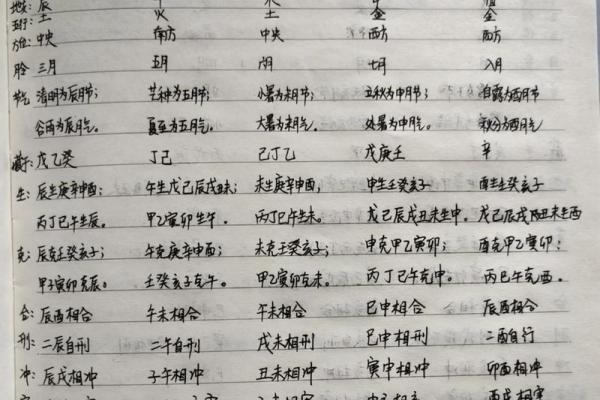 地支: 辰 午 未 申 酉
五行: 土 火 土 金 金
方位: 中央 南方 中央 西方 西方
三月 五月 六月 七月 八月
节气 清明为辰月节; 芒种为五月节; 小暑为未月节; 立秋为申月节; 白露为酉月节
谷雨为辰月气。 夏至为五月气。 大暑为未月气。 处暑为申气。 秋分为酉月气
藏: 戊乙癸 丁己 己丁乙 戊庚壬 辛
生: 辰生庚辛申酉; 午生戊己辰戌丑未; 未生庚辛申酉, 申生壬癸亥子 酉生壬癸亥子
丙丁巳午生辰。 甲乙寅卯生午。 丙丁巳午生未。 戊己辰戌丑未生申。 戊己辰戌丑未生酉
克: 辰克壬癸亥子; 午克庚辛申酉; 未克壬癸亥子; 申克甲乙寅卯; 酉克甲乙寅卯:
甲子寅卯克辰。 壬癸亥子克午。 甲乙寅卯克未。 丙丁巳午克申。 丙巳午克酉。
合: 辰酉相合 午未相合 午未相合 巳申相合 辰酉相合
刑: 二辰自刑 二午自刑 戌未相刑 巳申相刑 二酉自行
冲: 辰戌相冲 子午相冲 丑未相冲 寅申相冲 卯酉相冲